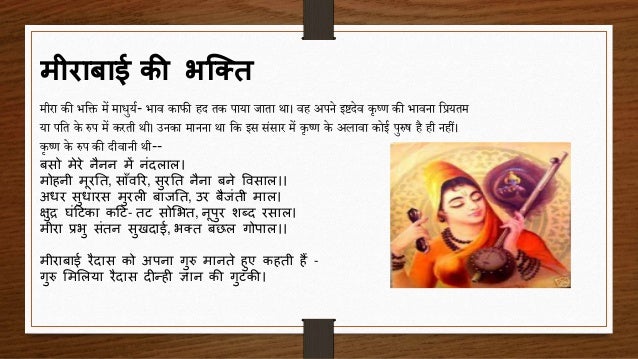 मीराबाई की भक्ति
मीरा की भक्ति में माधुर्य- भाव काफी हद तक पाया जाता था। वह अपने इष्टदेव कृष्ण की भावना प्रियतम
या पति के रुप में करती थी। उनका मानना था कि इस संसार में कृष्ण के अलावा कोई पुरुष है ही नहीं।
कृष्ण के रुप की दीवानी थी--
बसो मेरे नैनन में नंदलाल।
मोहनी मूरति, साँवरि, सुरति नैना बने विसाल।।
अधर सुधारस मुरली बाजति, उर बैजंती माल।
क्षुद्र घंटिका कटि- तट सोभित, नूपुर शब्द रसाल।
मीरा प्रभु संतन सुखदाई, भक्त बछल गोपाल।।
मीराबाई रैदास को अपना गुरु मानते हुए कहती हैं -
गुरु मिलिया रैदास दीन्ही ज्ञान की गुटकी।